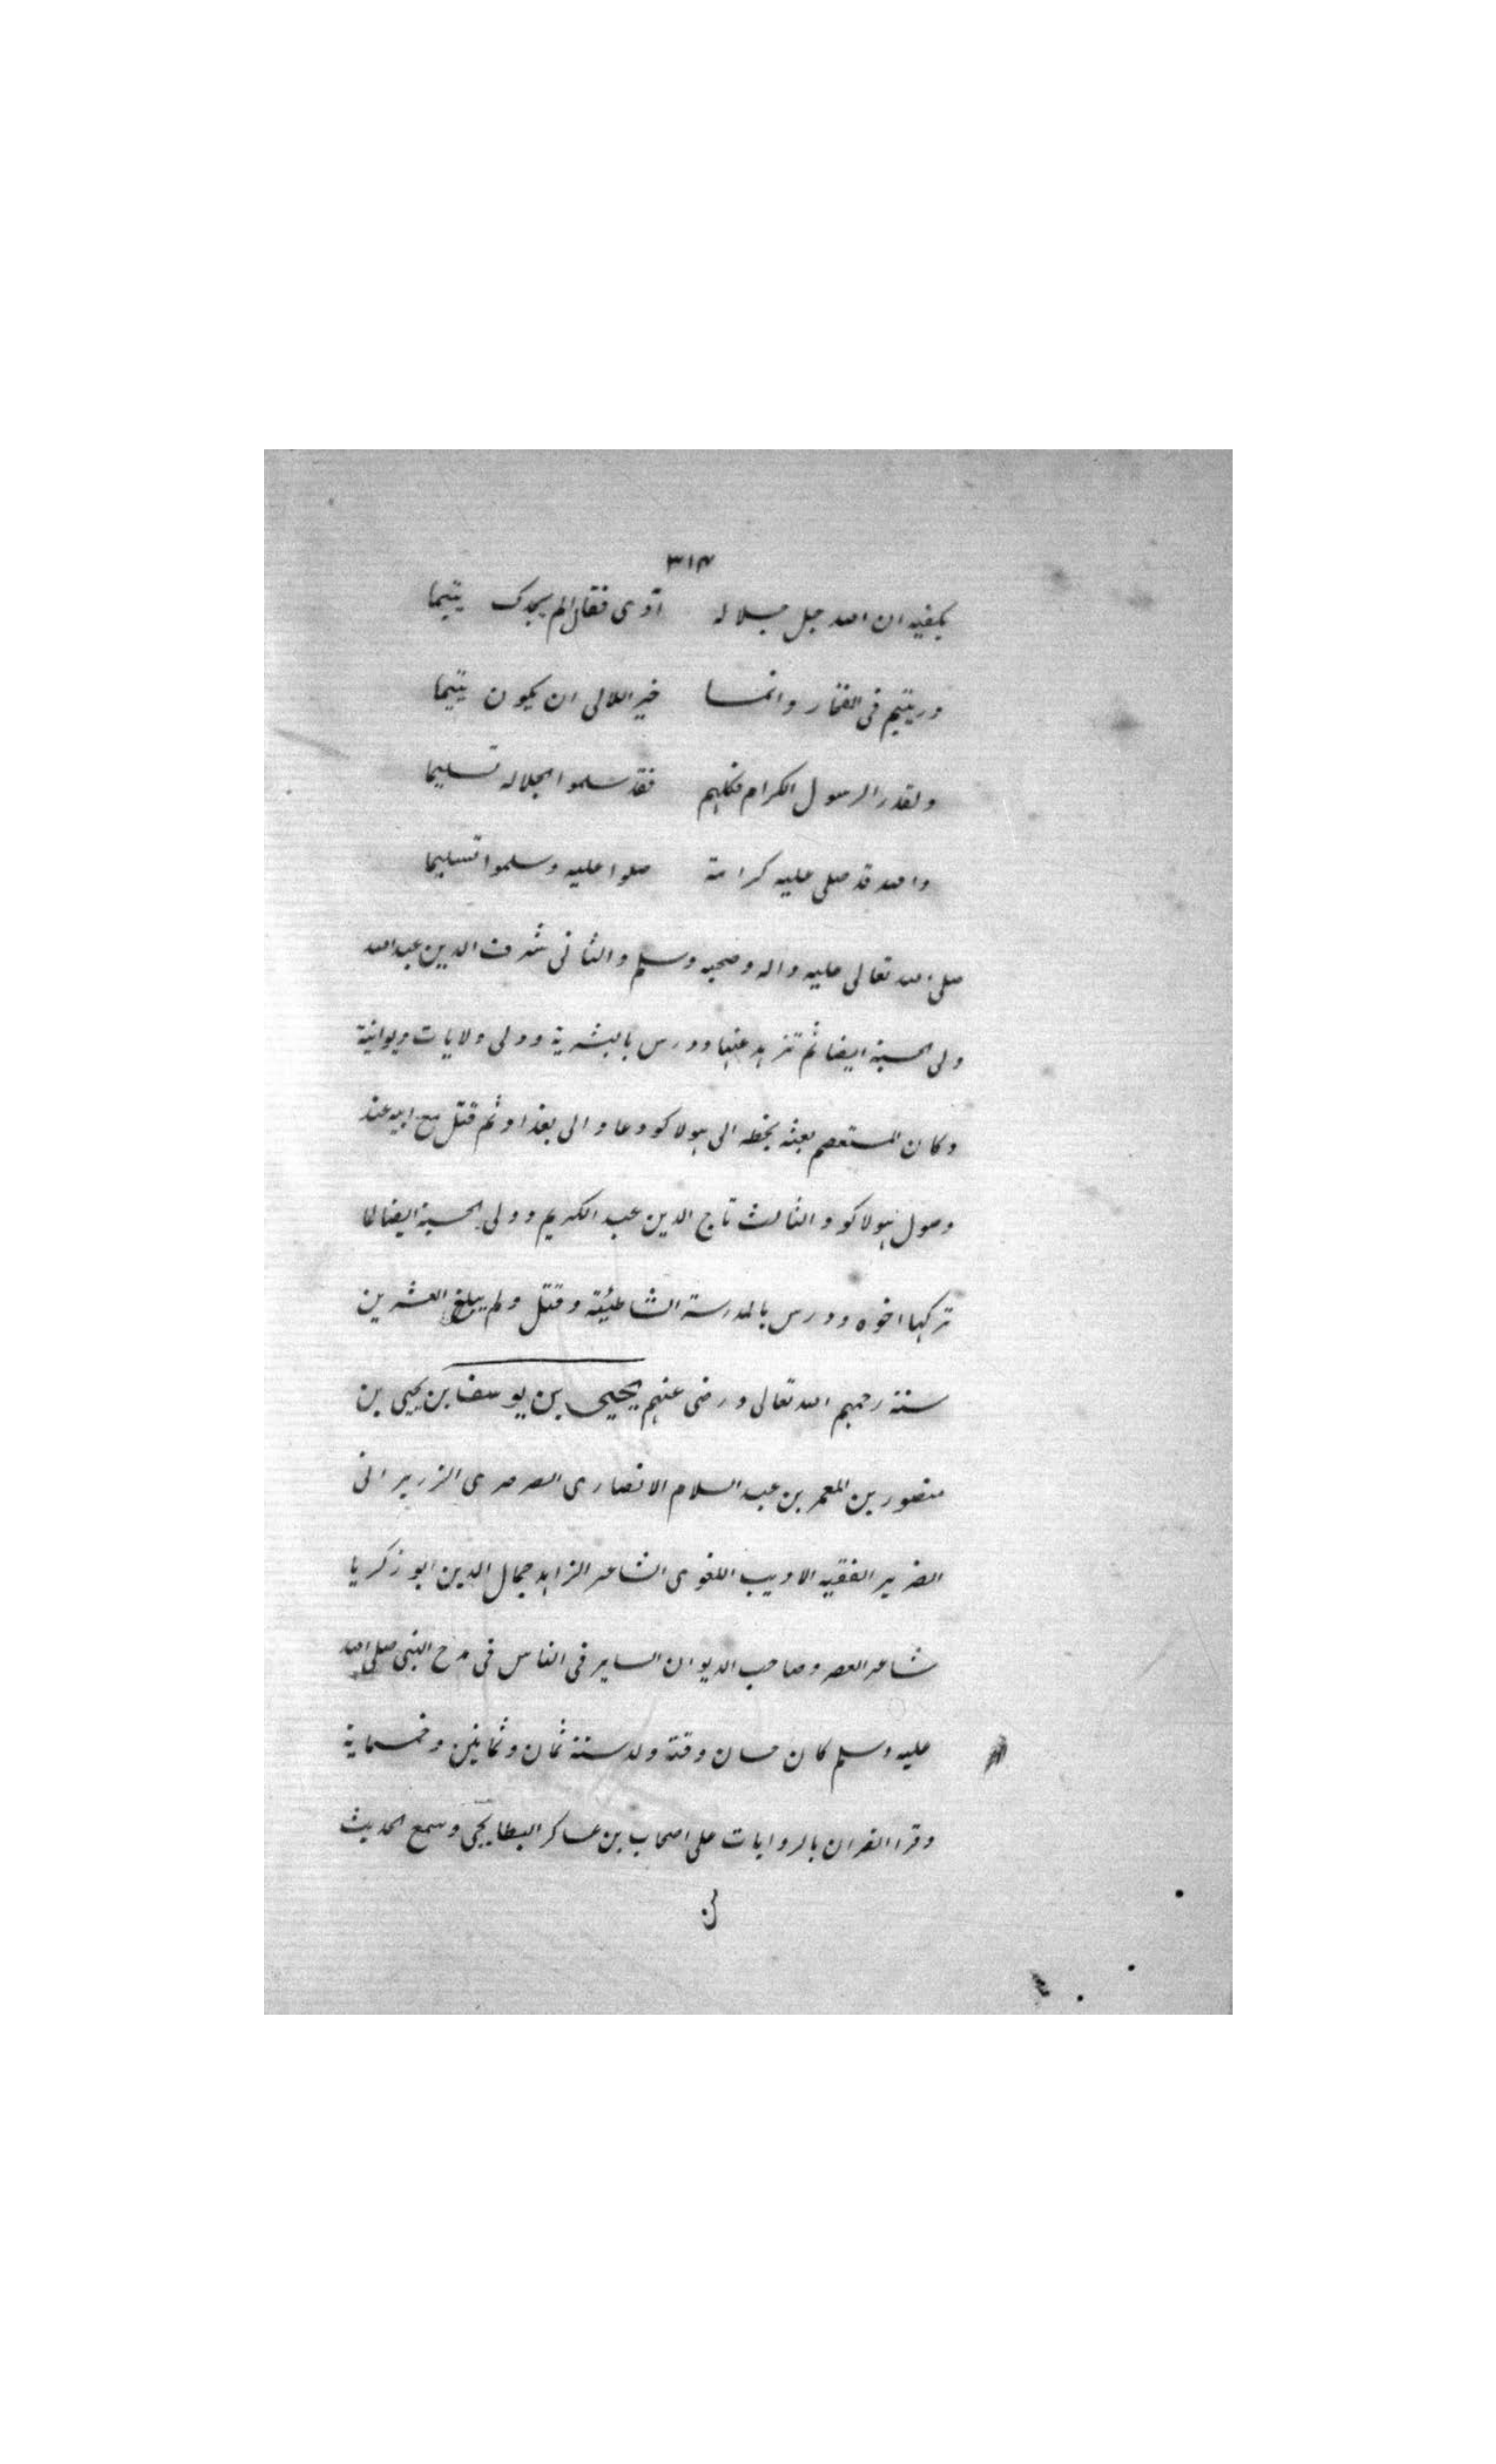 ٣١٣
يكفيه ان الله جل جلاله اوى فقال الم يجدك يتيما
وريتيم فى الفخار وانما خير اللالى ان يكون يتيما
ولقد را الرسول الكرام فكلهم فقد سلموا لجلاله تسليما
والله قد صلى عليه كرامة صلوا عليه وسلموا تسليما
صلى الله تعالى عليه واله وصحبه وسلم والثانى شرف الدين عبد الله
ولى الحسبة ايضا ثم تزهد عنها ودرس بالبشرية وولى ولايات ديوانية
وكان المستعصم بعثه بخطه الى هولاكو وعاد الى بغداد ثم قتل مع ابيه عند
وصول هولاكو والثالث تاج الدين عبد الكريم وولى الحسبة ايضا لما
تركها اخوه ودرس بالمدرسة الشاطئية وقتل ولم يبلغ العشرين
سنة رحمهم الله تعالى ورضى عنهم يحيى بن يوسف بن يحيى بن
منصور بن المعمر بن عبد السلام الانصارى الصرصرى الزريرانى
الضرير الفقيه الاديب اللغوى الشاعر الزاهد جمال الدين ابو زكريا
شاعر العصر وصاحب الديوان الساير فى الناس فى مدح النبى صلى الله
عليه وسلم كان حسان وقته ولد سنة ثمان وثمانين وخمسماية
وقرا القران بالروايات على اصحاب بن عساكر البطايحى وسمع الحديث